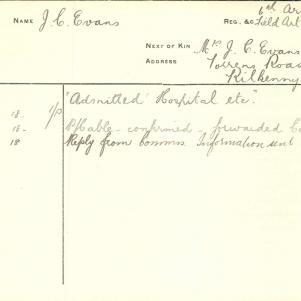 NAME J. C. Evans
REG. & C 6th Ar
Field Art
NEXT OF KIN Mrs J. C. Evans
ADDRESS Torrens Road
Kilkenny
"Admitted Hospital etc."
18.
18- Cable - confirmed - forwarded
18 Reply from Comms. Information sent